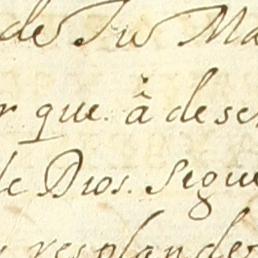 de Su Ma
r que. â de ser
de Dios. Segu
resplande